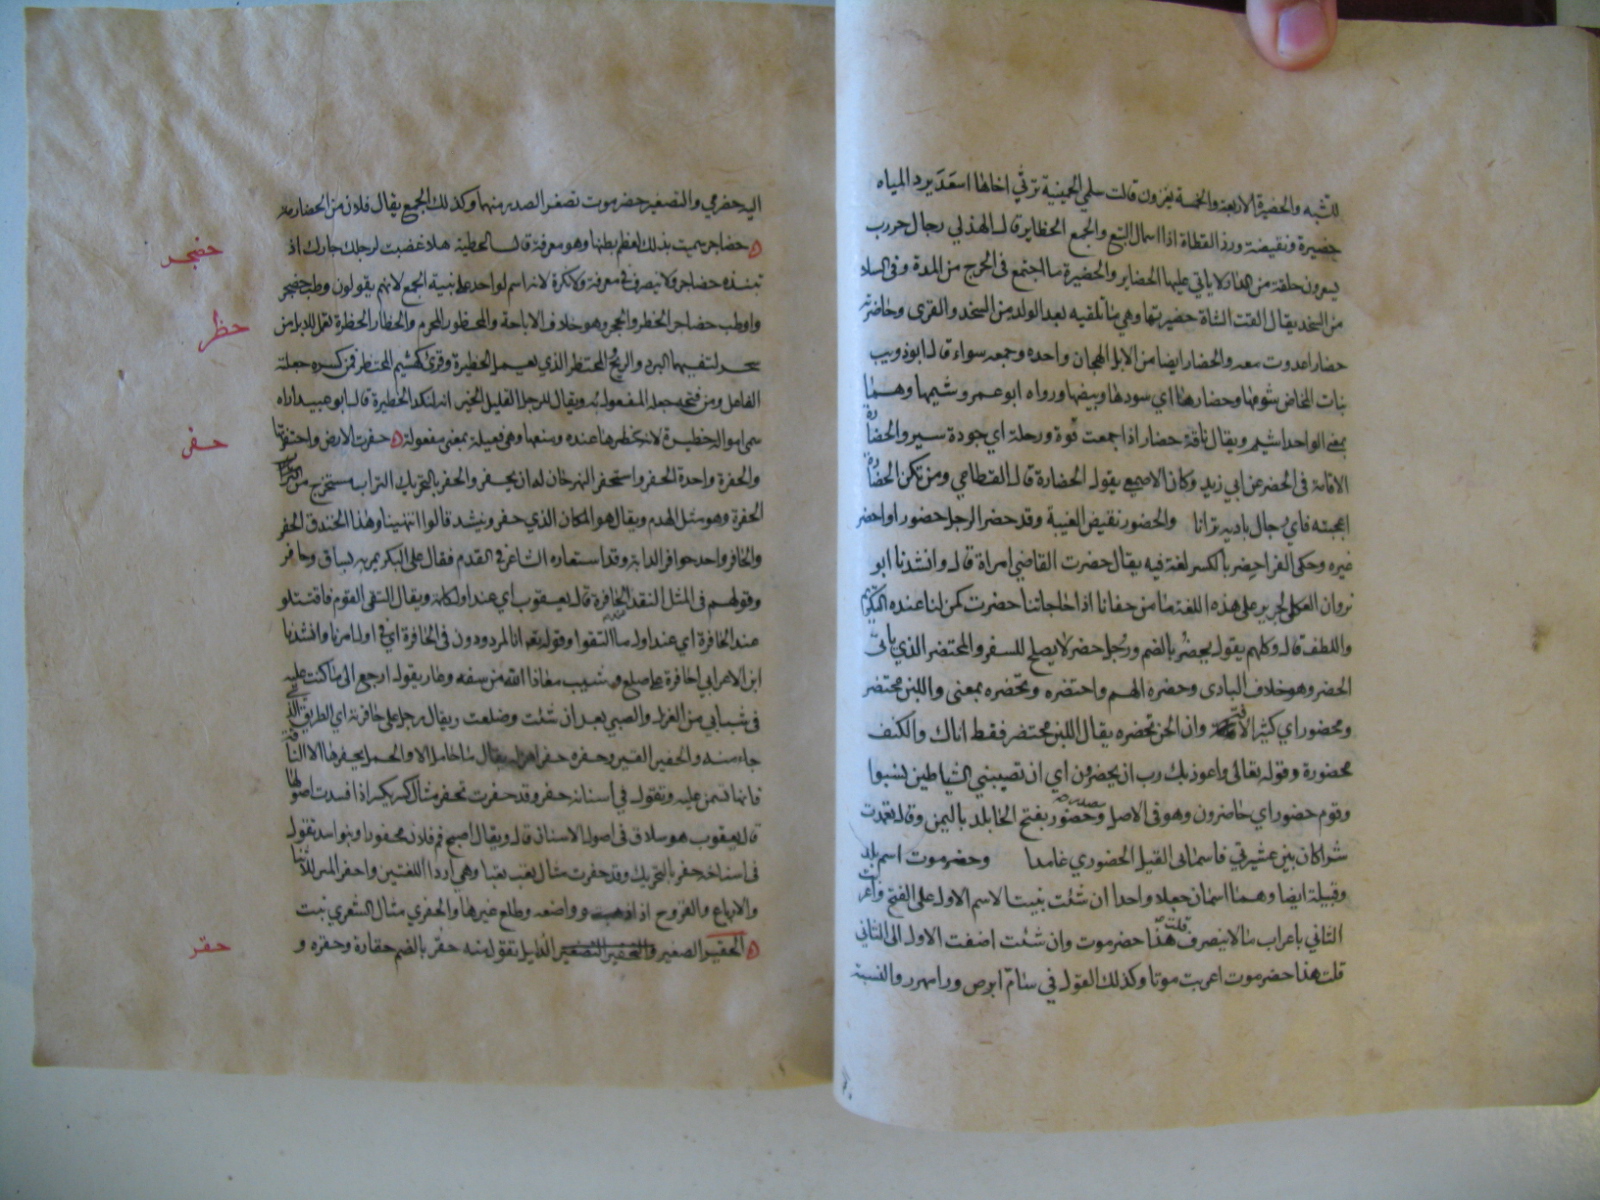 للشبه والحضيرة الاربعة والخمسة يغزون قالت سلمى الجهينية ترثي اخاها اسعد يرد المياه
حضيرة ونفيضة ورد القطاة اذا اسمال التبع والجمع الحظاير قال الهذلي رجال حروب
يسعرون حلقة من الدار لا ياتي عليها الحضاير والحضيرة ما اجتمع في الجرح من المدة وفي السلا
من السخد يقال القت الشاة حضيرتها وهي ما تلقيه بعد الولد من السخد والقذى وحاضرته
حضارا عدوت معه والحضار ايضا من الابل الهجان واحده وجمعه سواء قال ابو ذويب
بنات المخاض شومها وحضارها اي سودها وبيضها ورواه ابو عمرو شيمها وهما
بمعنى الواحد اشيم ويقال ناقة حضار اذا جمعت قوة ورحلة اي جودة سير والحضارة
الاقامة في الحضر عن ابي زيد وكان الاصمعي يقول الحضارة قال القطامي ومن تكن الحضارة
اعجبته فاي رجال بادية ترانا والحضور نقيض الغيبة وقد حضر الرجل حضورا واحضره
غيره وحكى الفرا حضر بالكسر لغة فيه يقال حضرت القاضي امراة قال وانشدنا ابو
ثروان العكلي لجرير على هذه اللغة ما من جفانا اذا حاجاتنا حضرت كمن لنا عنده التكريم
واللطف قال وكلهم يقول يحضر بالضم ورجل حضر لا يصلح للسفر والمحتضر الذي ياتي
الحضر وهو خلاف البادي وحضره الهم واحتضره وتحضره بمعنى واللبن محتضر
ومحضور اي كثير الافة وان الجن تحضره يقال اللبن محتضر فغط اناك والكنف
محضورة وقوله تعالى واعوذ بك رب ان يحضرون اي ان تصيبني الشياطين بسوا
وقوم حضور اي حاضرون وهو في الاصل مصدر وحضور بفتح الحا بلد باليمن وقال تغمدت
شرا كان بين عشيرتي فاسماني القيل الحضوري غامدا وحضرموت اسم بلد
وقبيلة ايضا وهما اسمان جعلا واحدا ان شئت بنيت الاسم الاول على الفتح واعربت
الثاني باعراب ما لا ينصرف قلت هذا حضرموت وان شئت اضفت الاول الى الثاني
قلت هذا حضرموت اعربت موتا وكذلك القول في سام ابرص ورامهرمز والنسبة
اليه حضرمي والتصغير حضيرموت تصغر الصدر منهما وكذلك الجمع يقال فلان من الحضارمة
حضجر
حضاجر سميت بذلك لعظم بطنها وهو معرفة قال الحطية هلا غضبت لرجل جارك اذ
تنبذه حضاجر ولا ينصرف في معرفة ولا نكرة لانه اسم لواحد على بنية الجمع لانهم يقولون وطب حضجر
حظر
واوطب حضاجر الحظر الحجر وهو خلاف الاباحة والمحظور المحرم والحظار الحظيرة تعمل للابل من
شجر لتقيها البرد والريح المحتظر الذي يعمل الحظيرة وقرئ كهشيم المحتظر فمن كسره جعله
الفاعل ومن فتحه جعله المفعول به ويقال للرجل القليل الخير انه لنكد الحظيرة قال ابو عبيد اراه
حفر
سمى امواله حظيرة لانه حظرها عنده ومنعها وهي فعيلة بمعنى مفعولة حفرت الارض واحتفرتها
والحفرة واحدة الحفر واستحفر النهر حان له ان يحفر والحفر بالتحريك التراب يستخرج من
الحفرة وهو مثل الهدم ويقال هو المكان الذي حفر وينشد قالوا انتهينا وهذا الخندق الحفر
والحافر واحد حوافر الدابة وقد استعاره الشاعر في القدم فقال على البكر يمريه بساق وحافر
وقولهم في المثل النقد عند الحافرة قال يعقوب اي عند اول كلمة ويقال التقى القوم فاقتتلوا
عند الحافرة اي عند اول ما التقوا وقوله تعالى انا لمردودون في الحافرة اي في اول امرنا وانشد
ابن الاعرابي احافرة على صلع وشيب معاذ الله من سفه وعار يقول ارجع الى ما كنت عليه
في شبابي من الغزل والصبى بعد ان شبت وصلعت ويقال رجع على حافرته اي الطريق الذي
جاء منه والحفير القبر وحفره حفرا هزله يقال ما حامل الا والحمل يحفرها الا الناقة
فانها تسمن عليه وتقول في اسنانه حفر وقد حفرت تحفر مثال كسر يكسر اذا فسدت اصولها
قال يعقوب هو سلاق في اصول الاسنان قال ويقال اصبح فم فلان محفورا وبنو اسد تقول
في اسنانه حفر بالتحريك وقد حفرت مثال تعب تعبا وهي اردا اللغتين واحفر المهر للاثنا
والارباع والقروح اذا ذهبت رواضعه وطلع غيرها والحفرى مثال الشعرى نبت
حقر
الحقير الصغير الذليل تقول منه حقر بالضم حقارة وحقره و